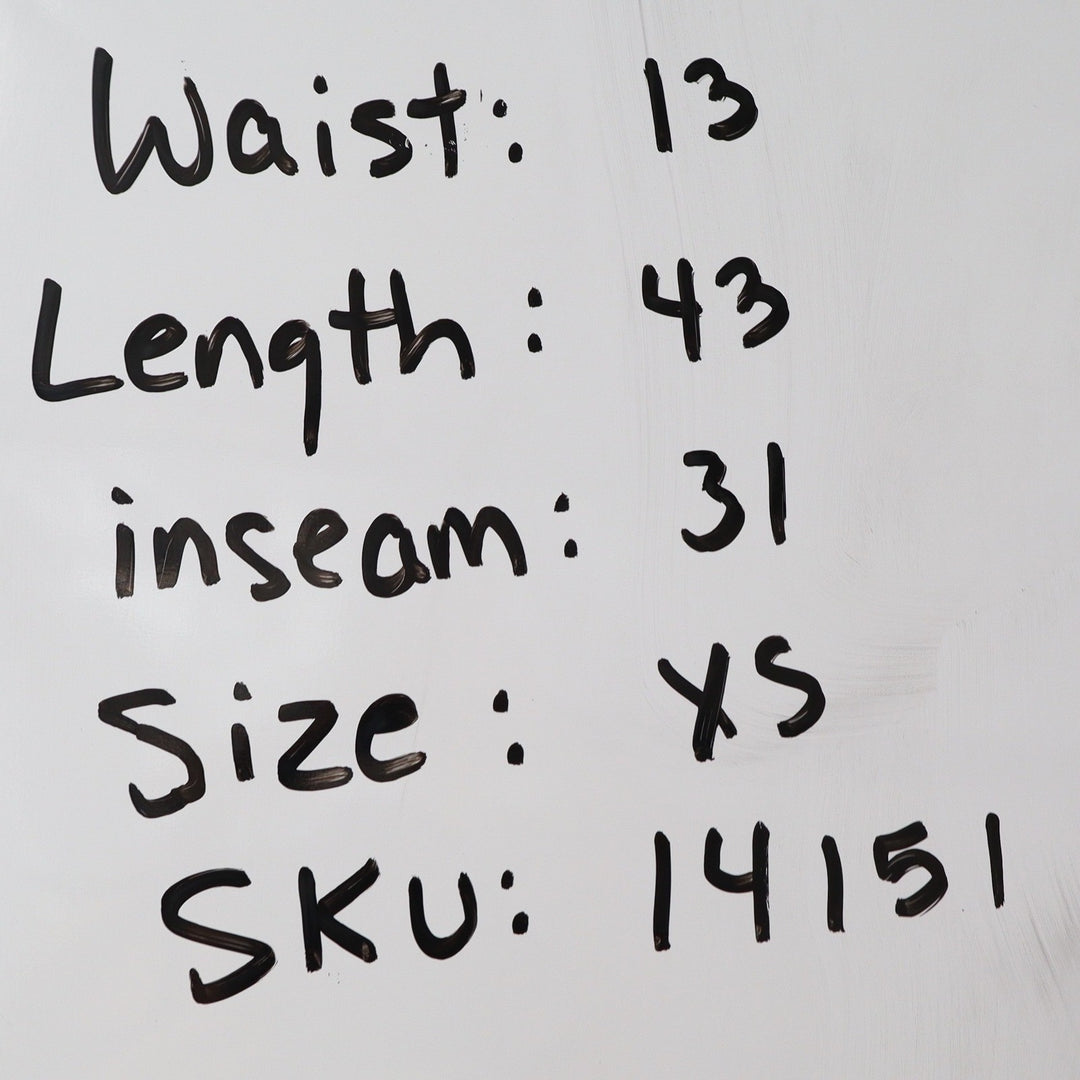 Waist: 13
Length: 43
inseam: 31
Size: XS
SKU: 14151